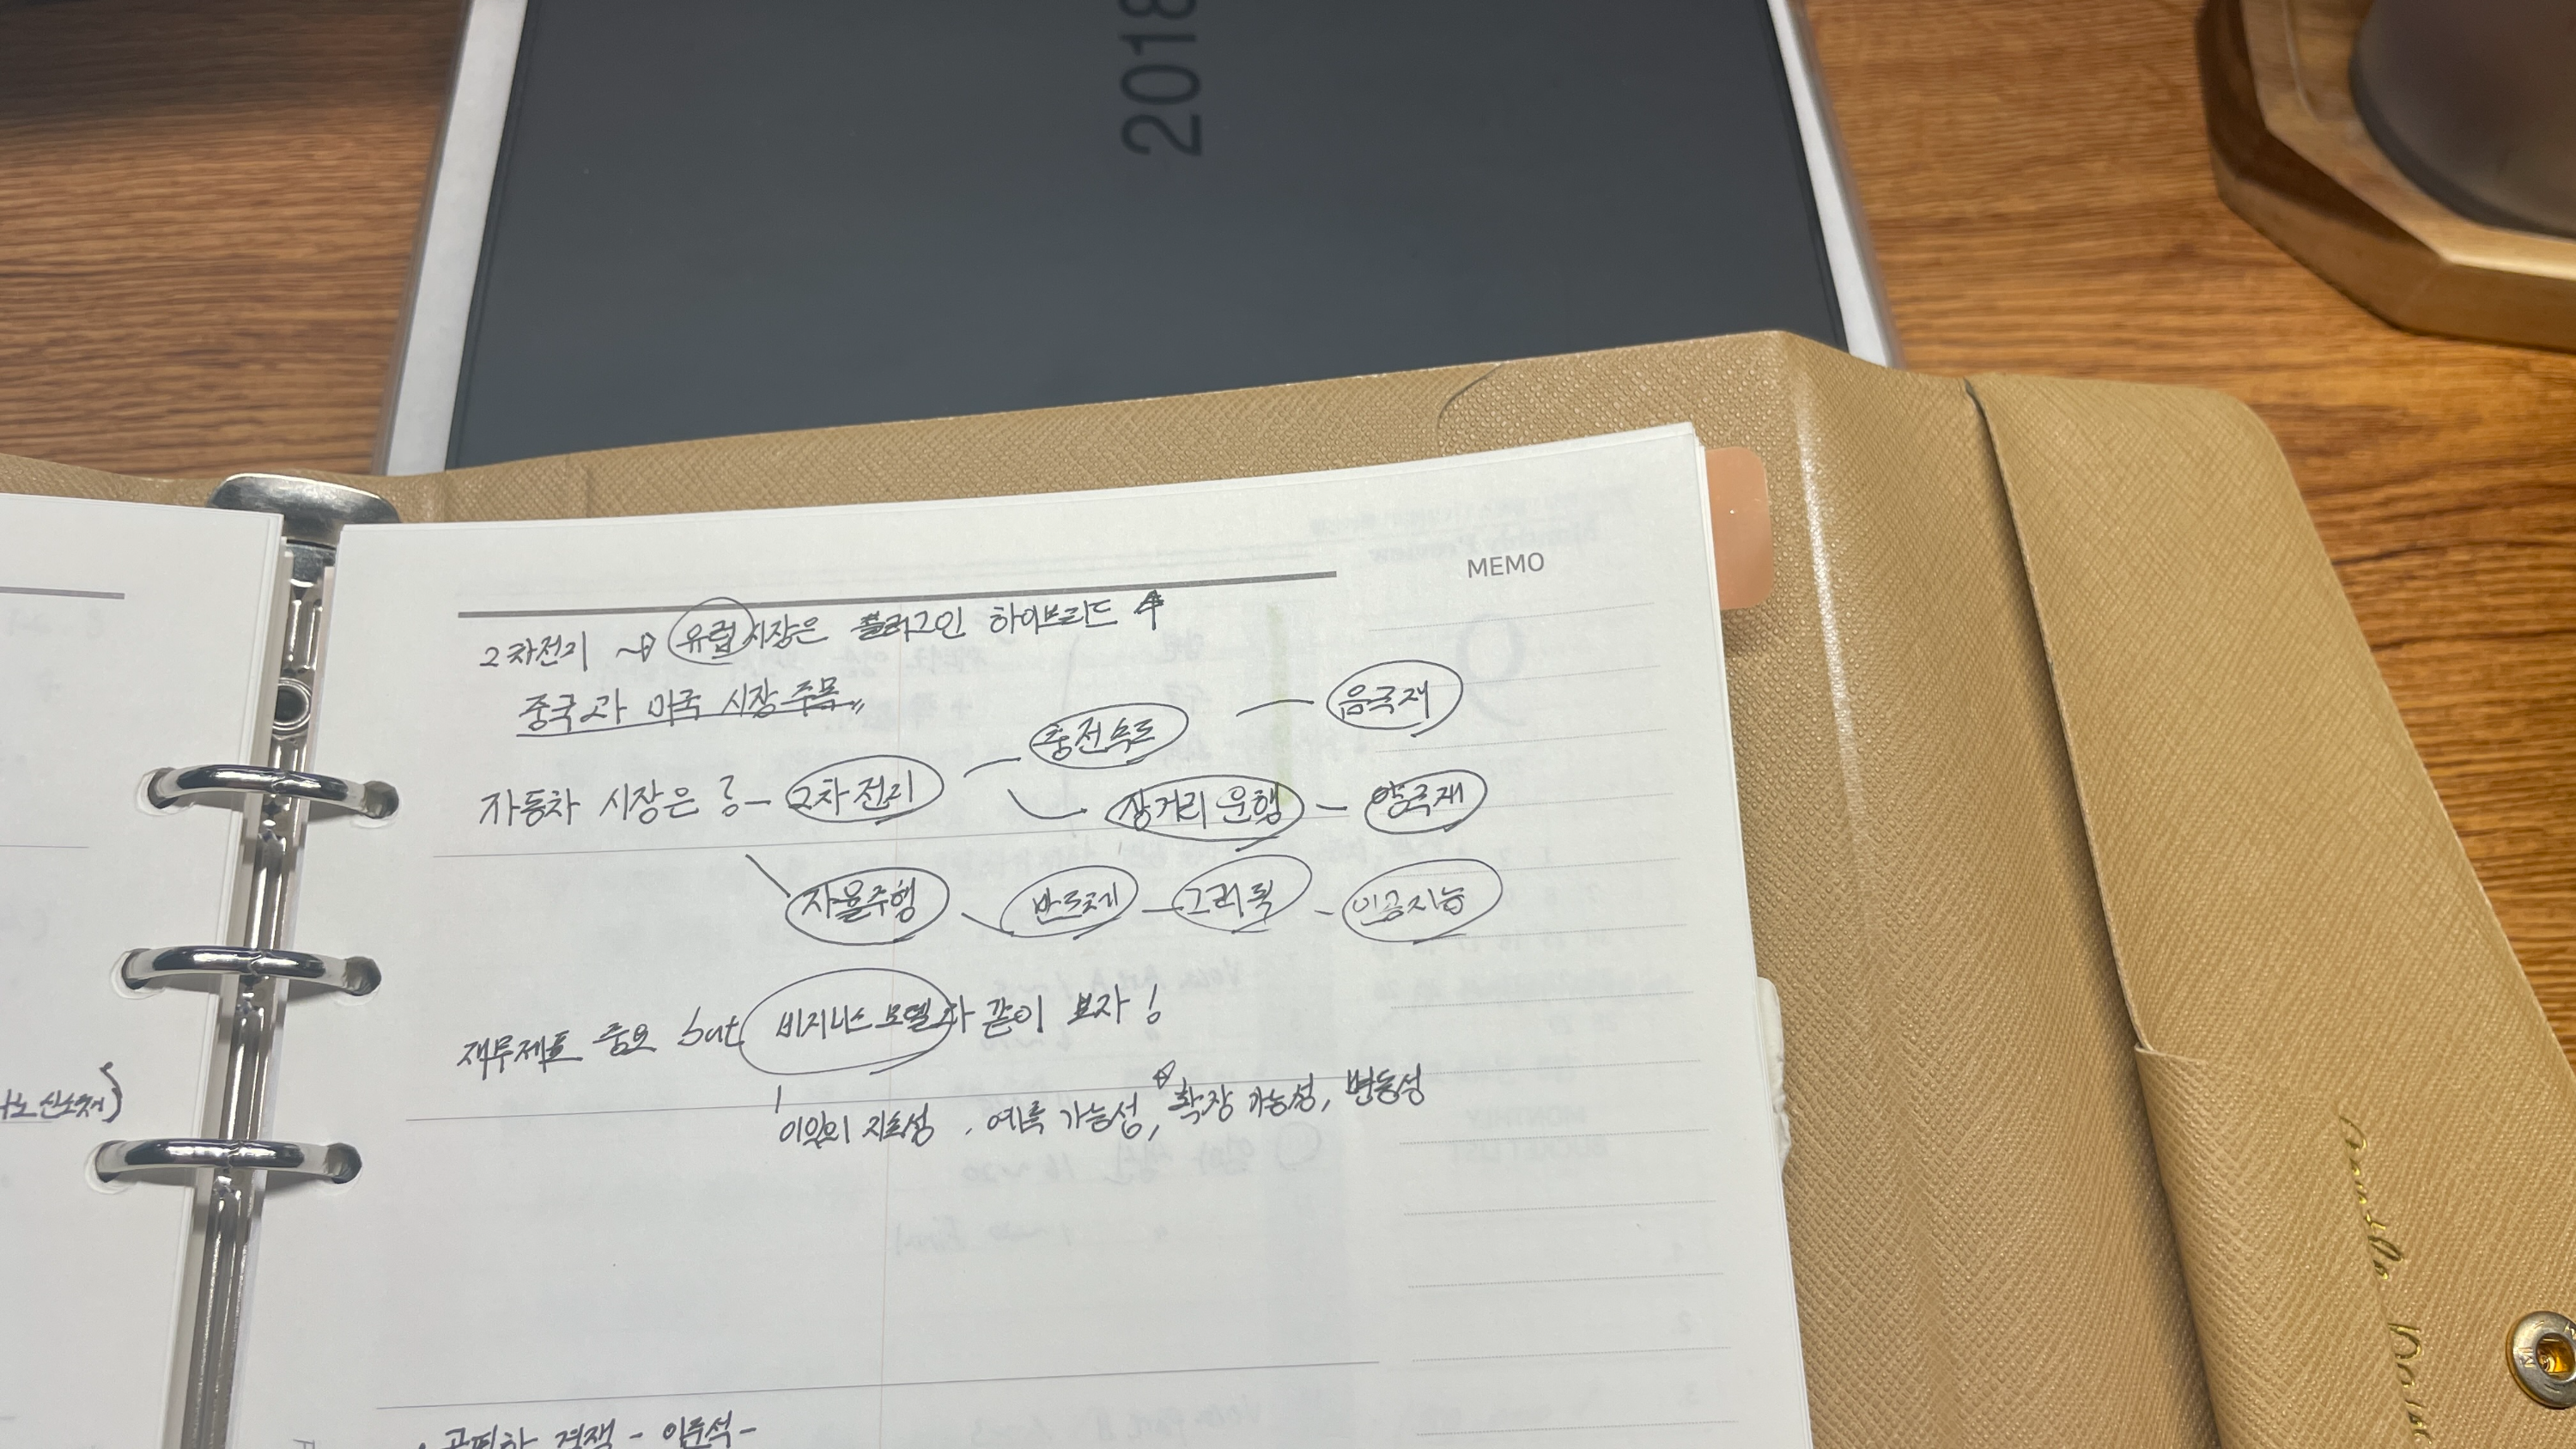 2018
MEMO
2차전지 → 유럽시장은 플러그인 하이브리드 ↑
중국과 미국 시장 주목
음극재
충전속도
자동차 시장은 2차전지
장거리 운행 - 양극재
자율주행 반도체 - 그래픽 - 인공지능
재무제표 중요 but 비지니스 모델과 같이 보자!
이익의 지속성, 예측 가능성, 확장 가능성, 변동성
공평한 경쟁 - 이준석 -